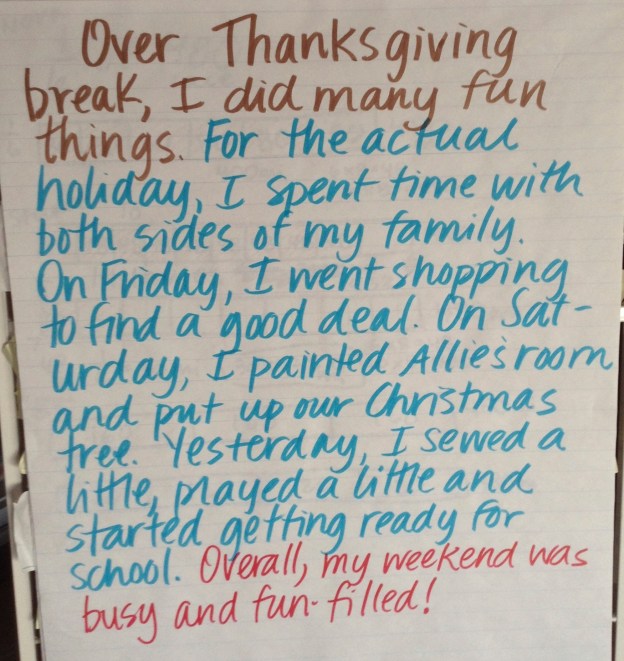 Over Thanksgiving
break, I did many fun
things. For the actual
holiday, I spent time with
both sides of my family.
On Friday, I went shopping
to find a good deal. On Sat-
urday, I painted Allie's room
and put up our Christmas
tree. Yesterday, I sewed a
little, played a little and
started getting ready for
school. Overall, my weekend was
busy and fun-filled!